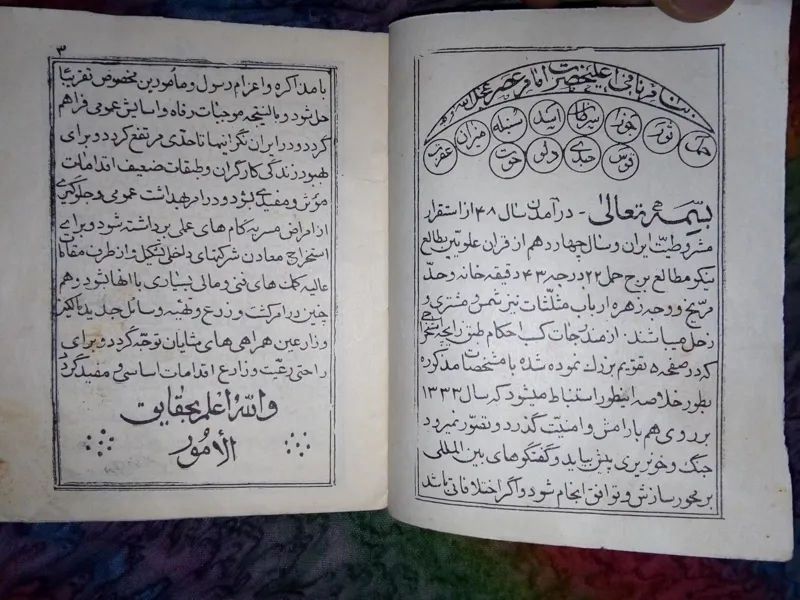 بنام نامی اعلیحضرت امام عصر عجل الله فرجه
حمل ثور جوزا سرطان اسد سنبله میزان عقرب
قوس جدی دلو حوت
بسمه تعالی - در آمدن سال ۴۸ از استقرار
مشروطیت ایران و سال چهاردهم از قران علویین بطالع
نیکو مطالع برج حمل ۲۲ درجه ۴۳ دقیقه خانه و حدّ
مریخ و وجه زهره ارباب مثلثات نیز شمس و مشتری و
زحل میباشند. از مندرجات کتب احکام طبق زایچه
که در صفحه ۵ تقویم بزرگ نموده شده با مشخصات مذکوره
بطور خلاصه اینطور استنباط میشود که سال ۱۳۳۲
بر روی هم بارامش و امنیّت گذرد و تصوّر نمیرود
جنگ و خونریزی پیش بیاید و گفتگوهای بین المللی
بر محور سازش و توافق انجام شود و اگر اختلافاتی باشد
۳
با مذاکره و اعزام رسول و مأمورین مخصوص تقریبًا
حل شود و بالنتیجه موجبات رفاه و اسایش عمومی فراهم
گردد و در ایران نگرانیها تا حدّی مرتفع گردد و برای
بهبود زندگی کارگران و طبقات ضعیف اقدامات
مؤثر و مفیدی بشود و در امر بهداشت عمومی و جلوگیری
از امراض مسریه گام های عملی برداشته شود و برای
استخراج معادن شرکتهای داخلی تشکیل و از طرف مقامات
عالیه کمک های فنی و مالی بسیاری با انها بشود هم
چنین در امر کشت و زرع و تهیه وسائل جدید با
و زارعین همراهی های شایان توجّه گردد و برای
راحتی رعیّت و زارع اقدامات اساسی و مفید گردد
والله اعلم بحقایق
الأمور